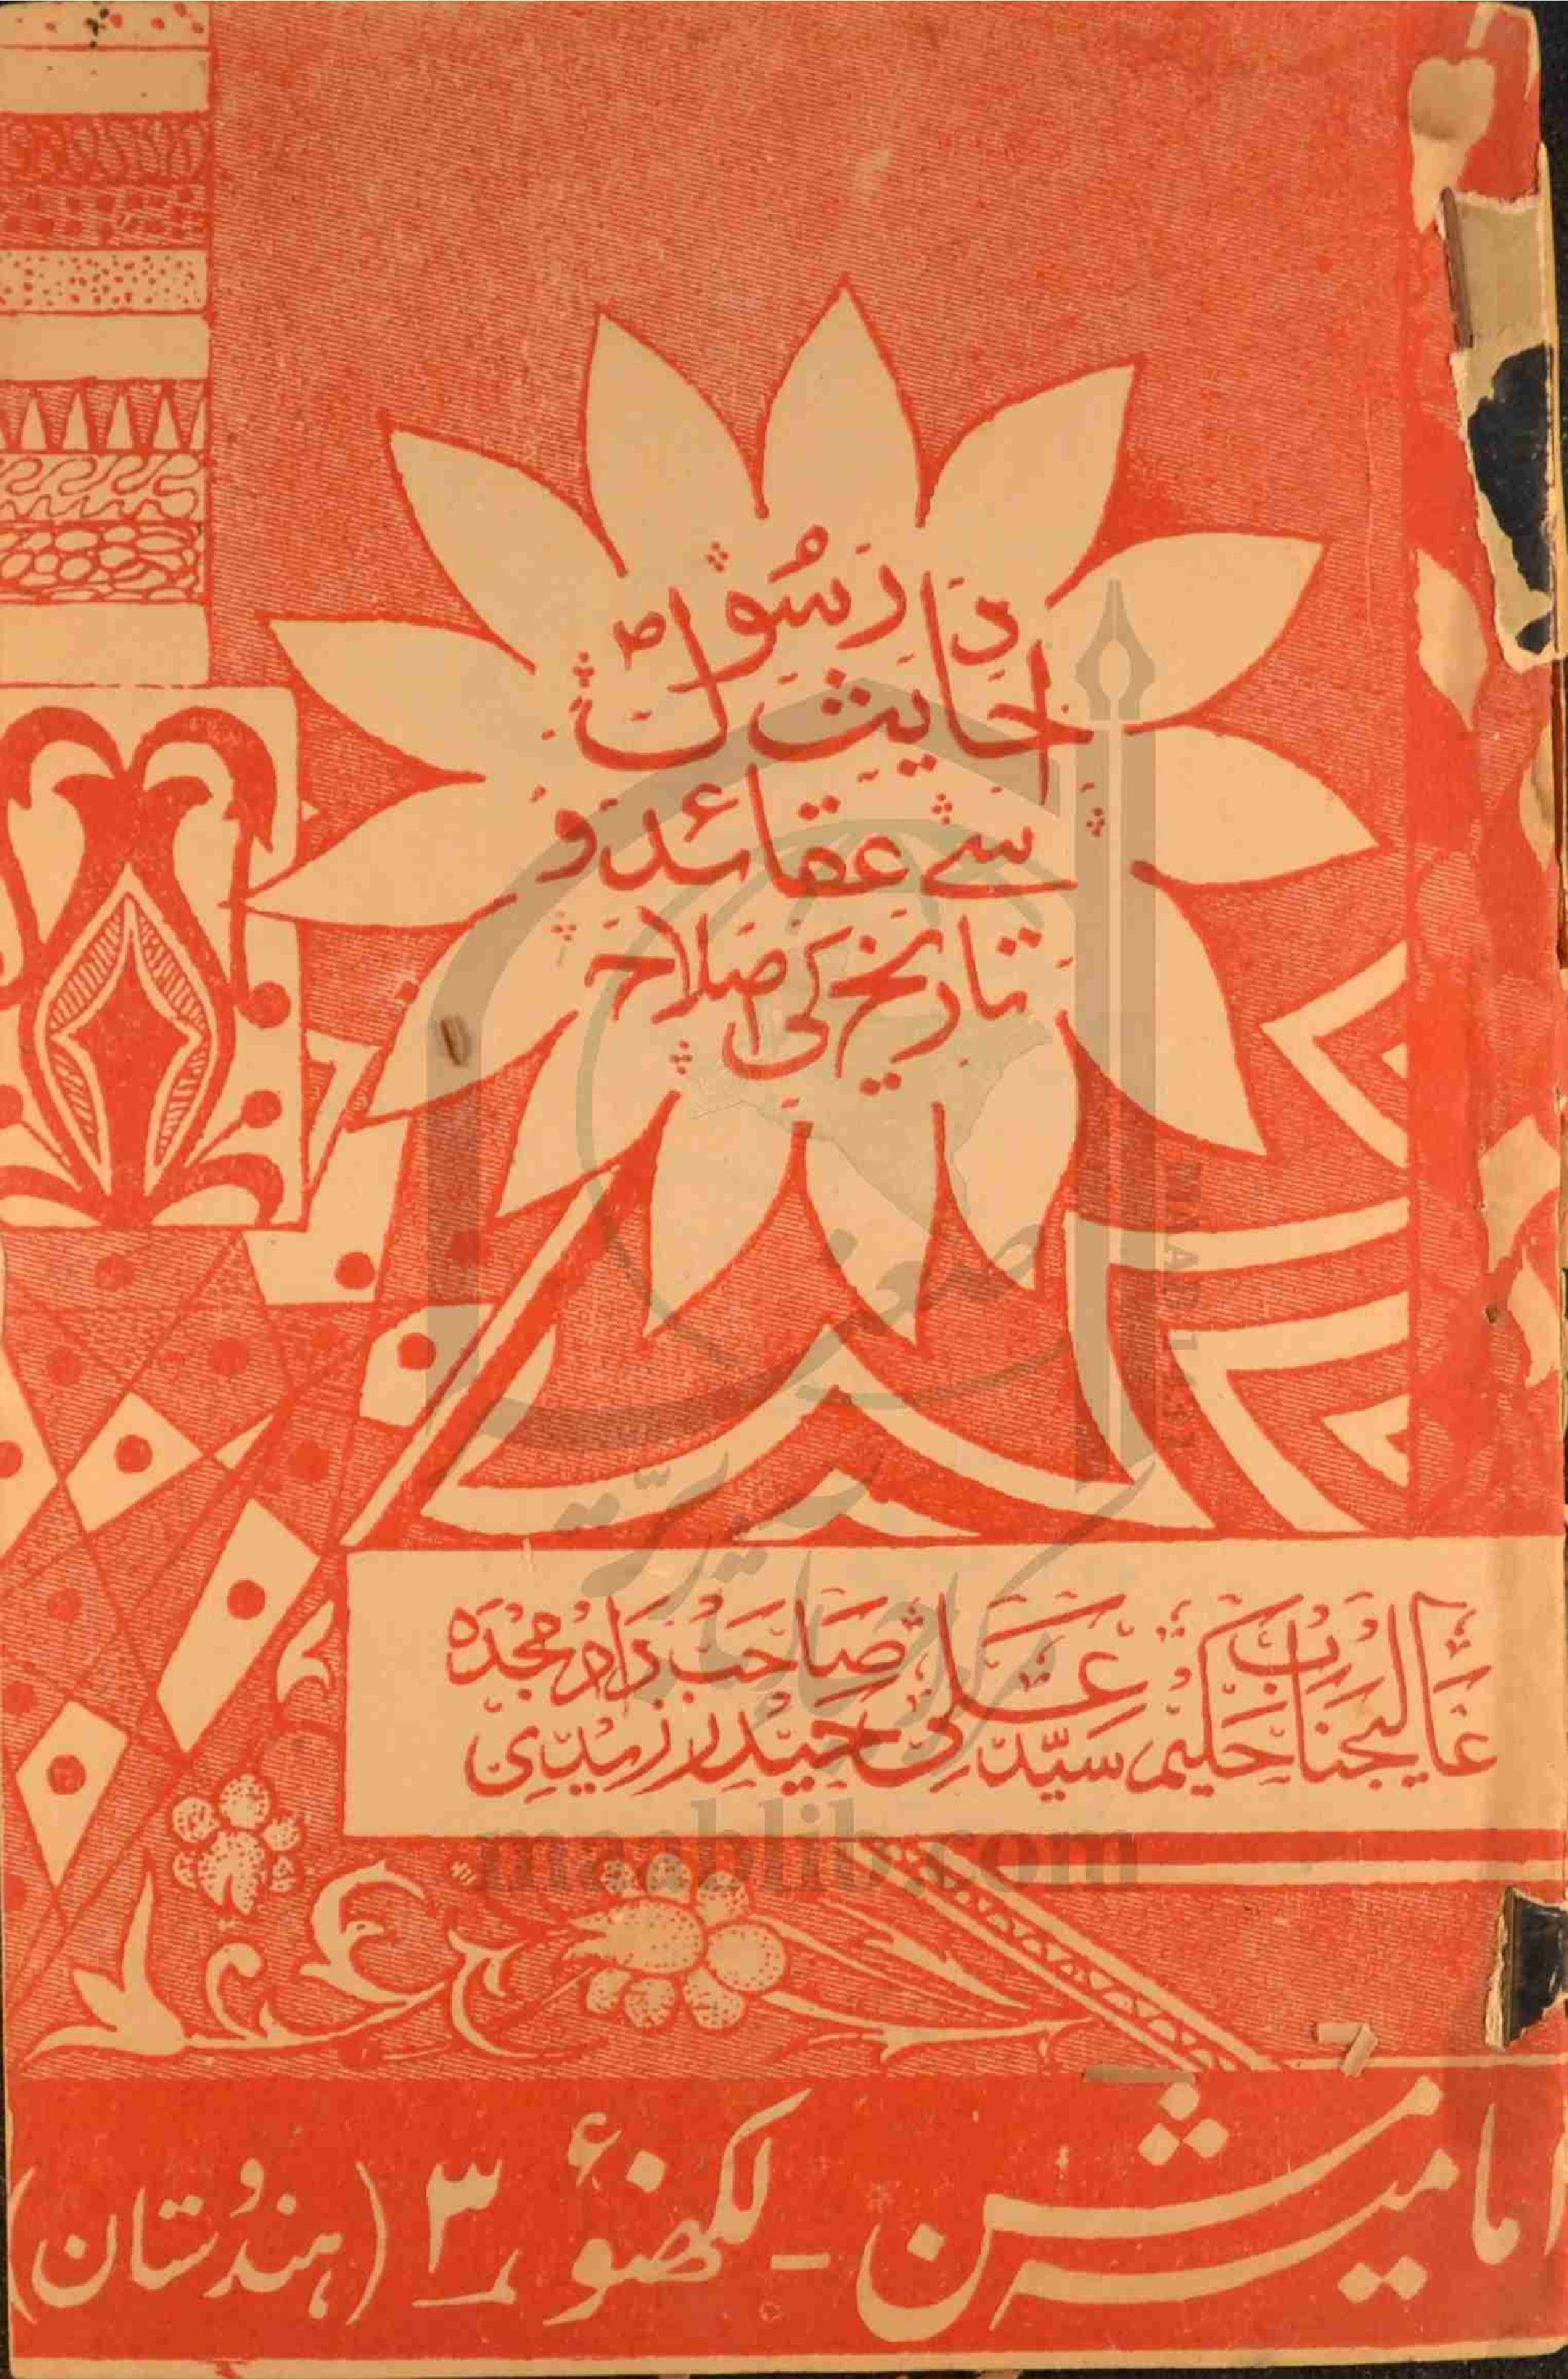 احادیث رسول ؐ
سے عقائد و
تاریخ کی اصلاح
عالیجناب حکیم سید علی صاحب زاد مجدہ
حیدر زیدی
امامیہ مشن - لکھنؤ ۳ (ہندوستان)
maablib.com
MAAB 1431